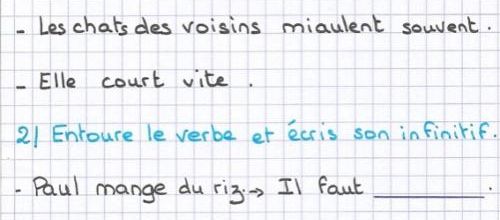 - Les chats des voisins miaulent souvent.
- Elle court vite.
2/ Entoure le verbe et écris son infinitif.
- Paul mange du riz.→ Il faut ________.